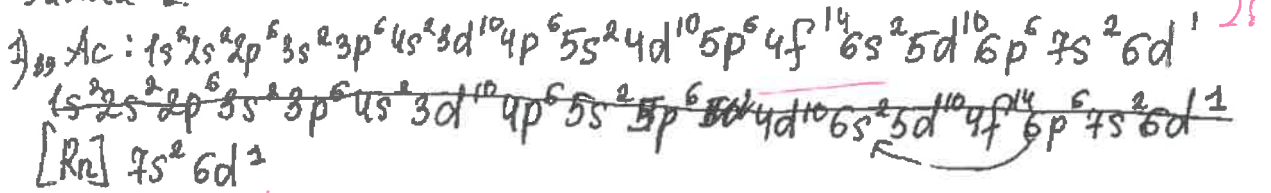 1) ₈₉Ac : 1s²2s²2p⁶3s²3p⁶4s²3d¹⁰4p⁶5s²4d¹⁰5p⁶4f¹⁴6s²5d¹⁰6p⁶7s²6d¹
1s²2s²2p⁶3s²3p⁶4s²3d¹⁰4p⁶5s²5p⁶4d¹⁰6s²5d¹⁰4f¹⁴6p⁶7s²6d¹
[Rn] 7s²6d¹